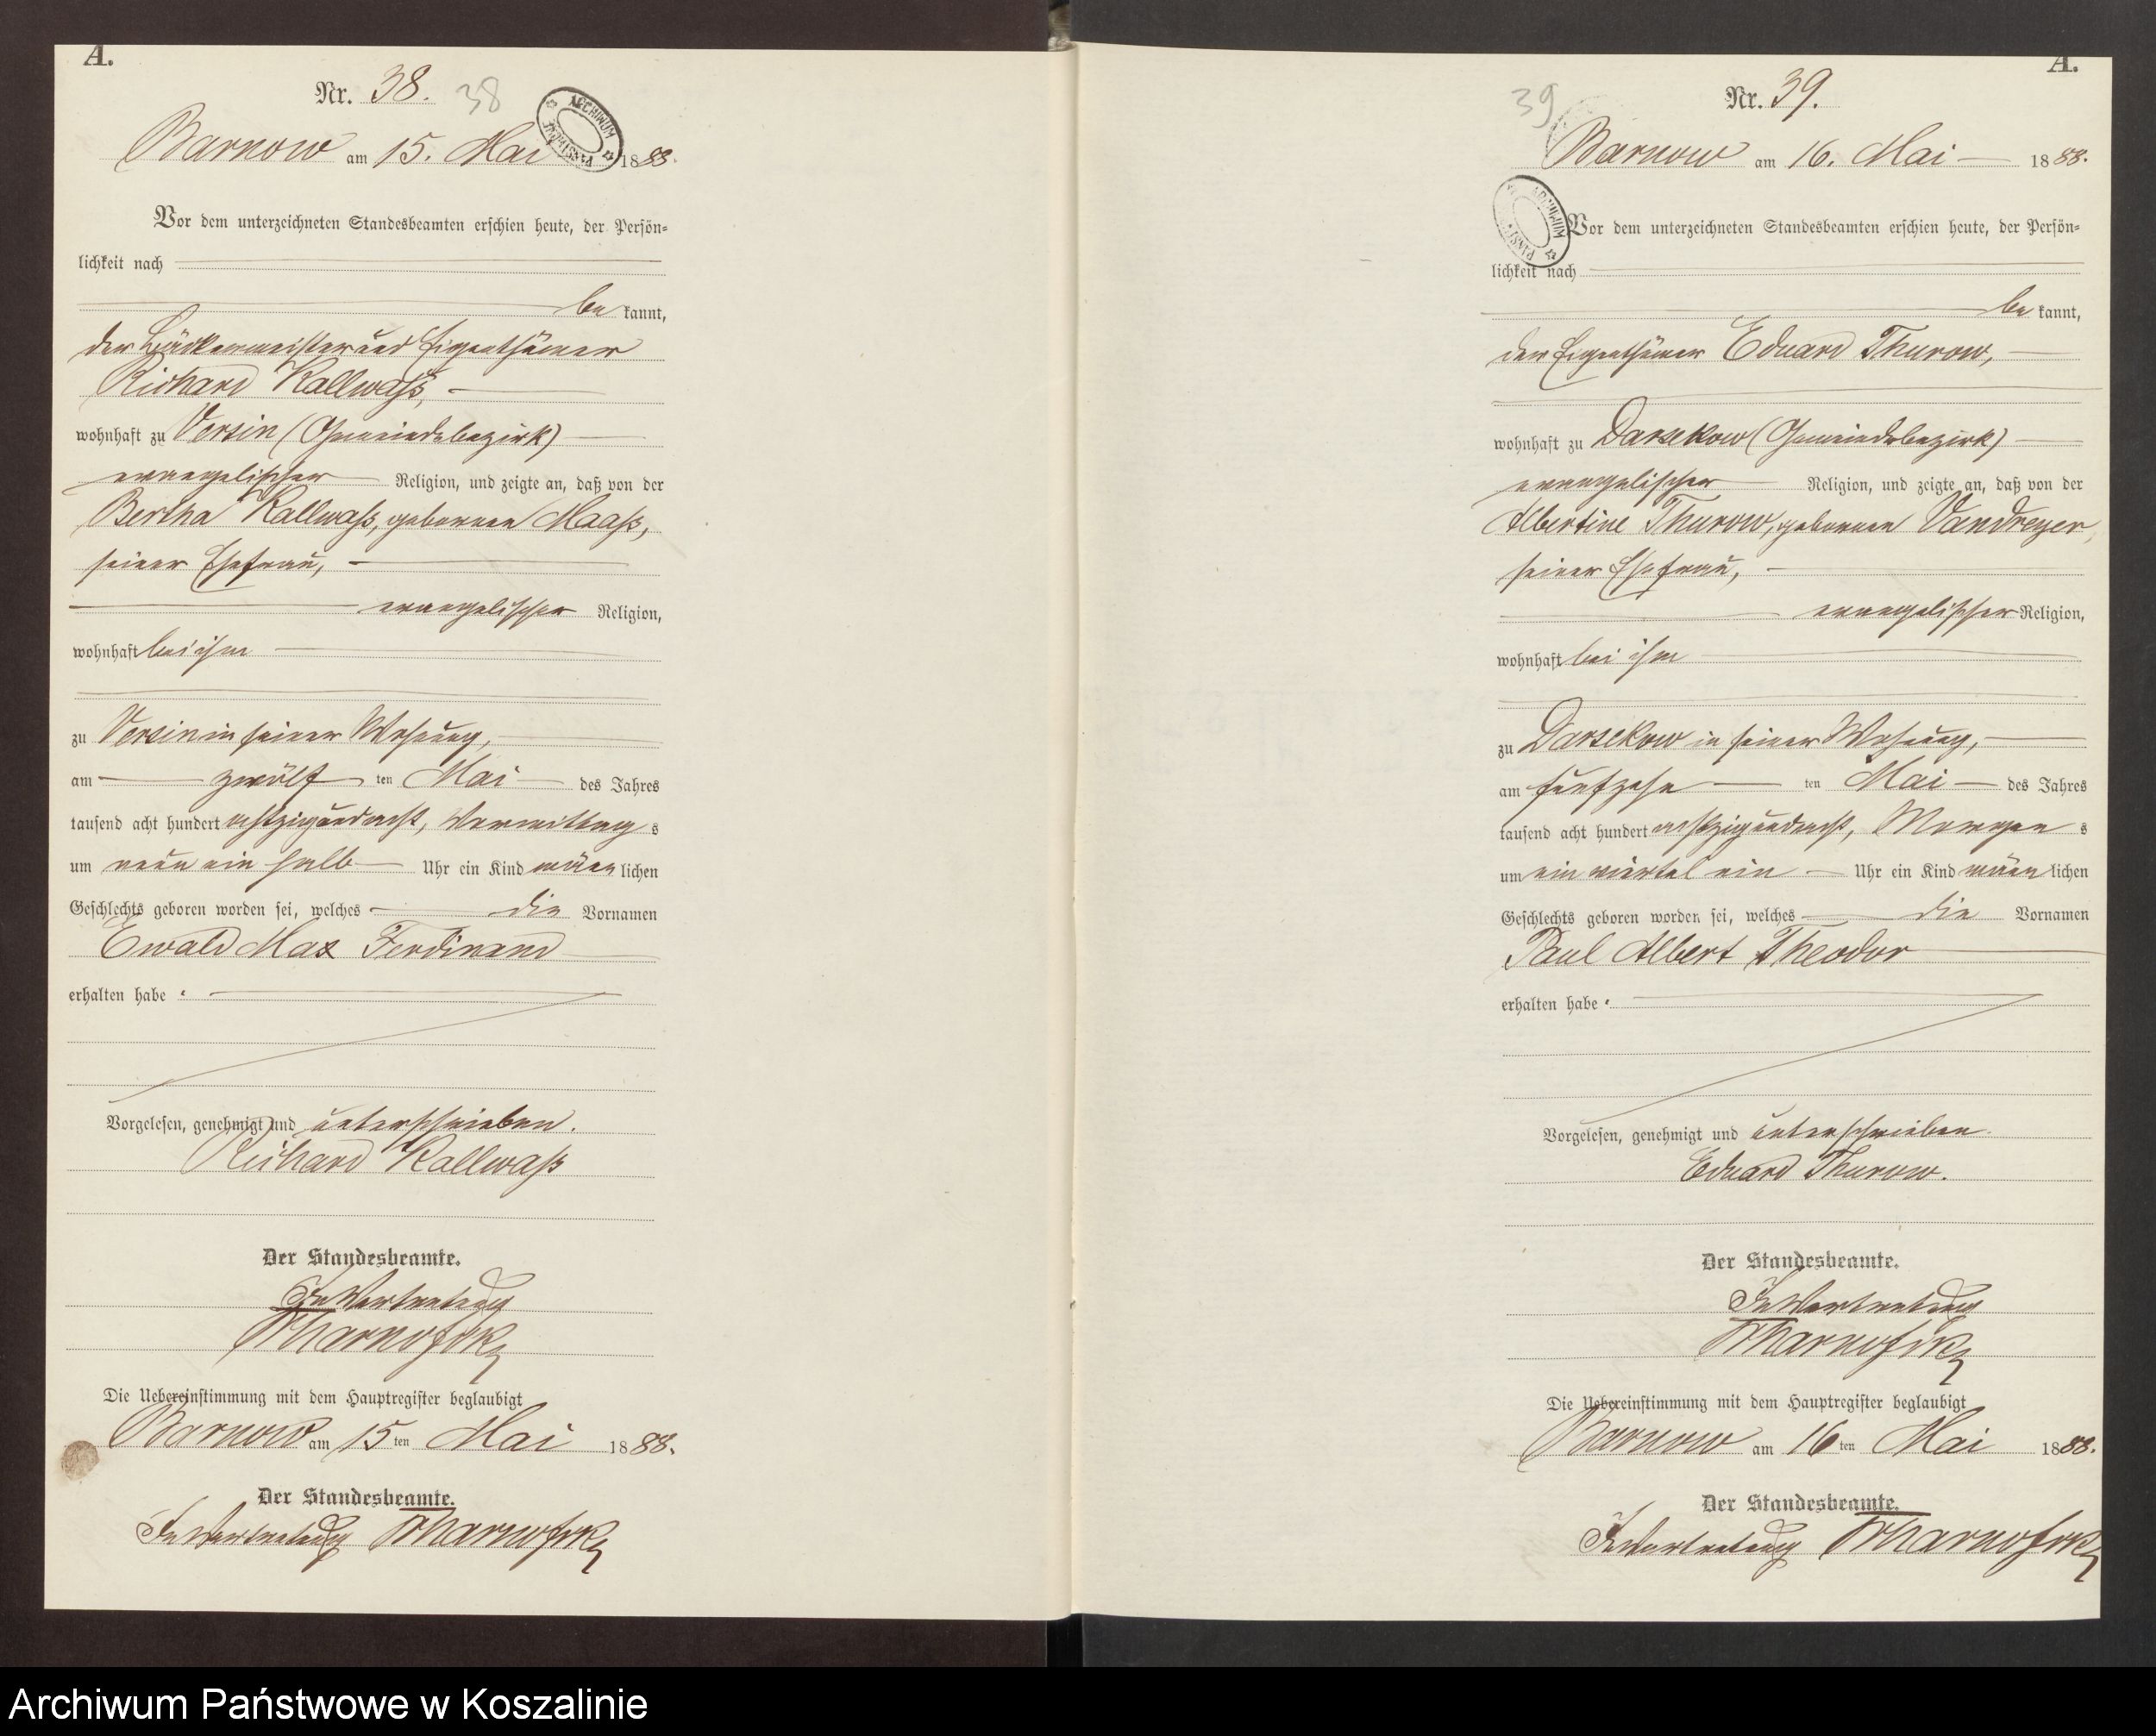 A.
Nr. 38. 38
ARCHIWUM PAŃSTWOWE
Barnow am 15. Mai 1888.
Vor dem unterzeichneten Standesbeamten erschien heute, der Persön-
lichkeit nach
be kannt,
der Bäckermeister und Eigenthümer
Richard Kallwaß,
wohnhaft zu Versin (Gemeindebezirk)
evangelischer Religion, und zeigte an, daß von der
Bertha Kallwaß, geborenen Maaß,
seiner Ehefrau,
evangelischer Religion,
wohnhaft bei ihm
zu Versin in seiner Wohnung,
am zwölf ten Mai des Jahres
tausend acht hundert achtzigundacht, Vormittag s
um neun ein halb Uhr ein Kind männ lichen
Geschlechts geboren worden sei, welches die Vornamen
Ewald Max Ferdinand
erhalten habe .
Vorgelesen, genehmigt und unterschrieben.
Richard Kallwaß
Der Standesbeamte.
In Vertretung
Die Uebereinstimmung mit dem Hauptregister beglaubigt
Barnow am 15 ten Mai 1888.
Der Standesbeamte.
In Vertretung
A.
39 Nr. 39.
Barnow am 16. Mai 1888.
ARCHIWUM
Vor dem unterzeichneten Standesbeamten erschien heute, der Persön-
lichkeit nach
be kannt,
der Eigenthümer Eduard Thurow,
wohnhaft zu Darsekow (Gemeindebezirk)
evangelischer Religion, und zeigte an, daß von der
Albertine Thurow, geborenen Vandreyer,
seiner Ehefrau,
evangelischer Religion,
wohnhaft bei ihm
zu Darsekow in seiner Wohnung,
am fünfzehn ten Mai des Jahres
tausend acht hundert achtzigundacht, Morgen s
um ein viertel ein Uhr ein Kind männ lichen
Geschlechts geboren worden sei, welches die Vornamen
Paul Albert Theodor
erhalten habe .
Vorgelesen, genehmigt und unterschrieben.
Eduard Thurow.
Der Standesbeamte.
In Vertretung
Die Uebereinstimmung mit dem Hauptregister beglaubigt
Barnow am 16 ten Mai 1888.
Der Standesbeamte.
In Vertretung
Archiwum Państwowe w Koszalinie